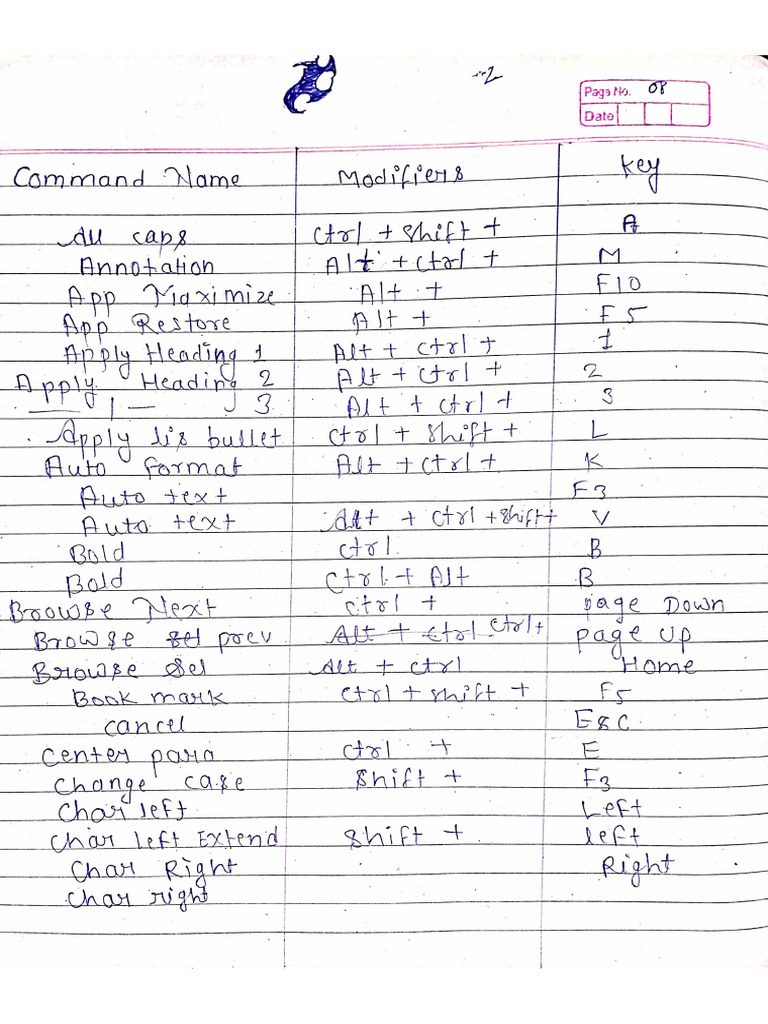 -2
Page No. 08
Date
Command Name Modifiers Key
All caps Ctrl + Shift + A
Annotation Alt + Ctrl + M
App Maximize Alt + F10
App Restore Alt + F5
Apply Heading 1 Alt + Ctrl + 1
Apply Heading 2 Alt + Ctrl + 2
—— 1 — 3 Alt + Ctrl + 3
Apply lis bullet Ctrl + Shift + L
Auto format Alt + Ctrl + K
Auto text F3
Auto text Alt + Ctrl + Shift + V
Bold Ctrl B
Bold Ctrl + Alt B
Browse Next Ctrl + page Down
Browse sel prev Alt + Ctrl Ctrl + page Up
Browse Sel Alt + Ctrl Home
Book mark Ctrl + Shift + F5
Cancel ESC
Center para Ctrl + E
Change case Shift + F3
Char left Left
Char left Extend Shift + left
Char Right Right
Char right